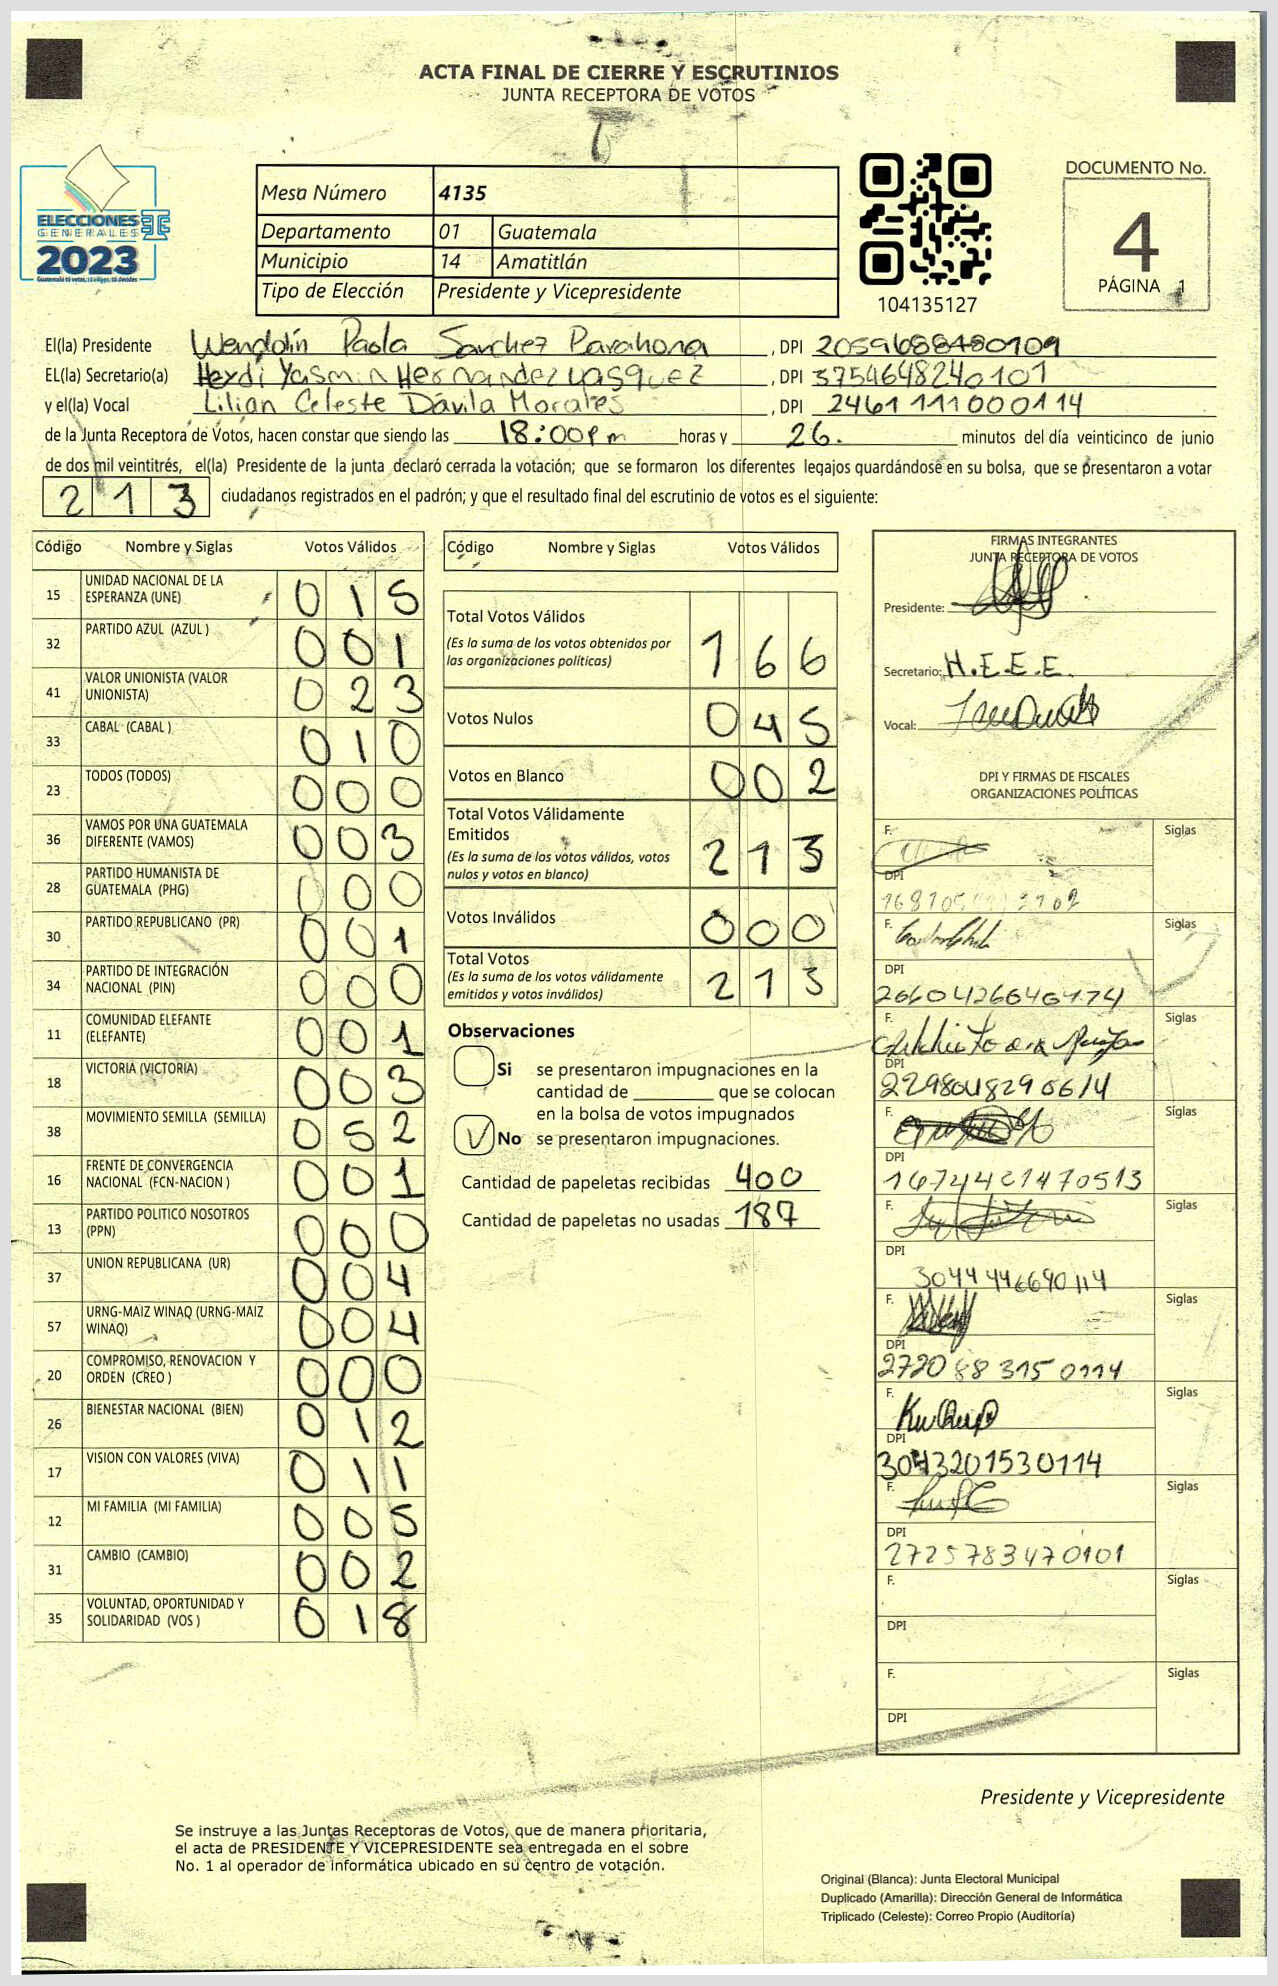 ACTA FINAL DE CIERRE Y ESCRUTINIOS
JUNTA RECEPTORA DE VOTOS
ELECCIONES
GENERALES
2023
Mesa Número 4135
Departamento 01 Guatemala
Municipio 14 Amatitlán
Tipo de Elección Presidente y Vicepresidente
104135127
DOCUMENTO No.
4
PÁGINA 1
El(la) Presidente Wendolin Paola Sanchez Parahona, DPI 2059688480109
EL(la) Secretario(a) Heydi Yasmin Hernandez Vasquez, DPI 3754648240101
y el(la) Vocal Lilian Celeste Dávila Morales, DPI 2461111000114
de la Junta Receptora de Votos, hacen constar que siendo las 18:00pm horas y 26. minutos del día veinticinco de junio
de dos mil veintitrés, el(la) Presidente de la junta declaró cerrada la votación; que se formaron los diferentes legajos quardándose en su bolsa, que se presentaron a votar
213 ciudadanos registrados en el padrón; y que el resultado final del escrutinio de votos es el siguiente:
Código Nombre y Siglas Votos Válidos
15 UNIDAD NACIONAL DE LA ESPERANZA (UNE) 015
32 PARTIDO AZUL (AZUL ) 001
41 VALOR UNIONISTA (VALOR UNIONISTA) 023
33 CABAL (CABAL ) 010
23 TODOS (TODOS) 000
36 VAMOS POR UNA GUATEMALA DIFERENTE (VAMOS) 003
28 PARTIDO HUMANISTA DE GUATEMALA (PHG) 000
30 PARTIDO REPUBLICANO (PR) 001
34 PARTIDO DE INTEGRACIÓN NACIONAL (PIN) 000
11 COMUNIDAD ELEFANTE (ELEFANTE) 001
18 VICTORIA (VICTORIA) 003
38 MOVIMIENTO SEMILLA (SEMILLA) 052
16 FRENTE DE CONVERGENCIA NACIONAL (FCN-NACION ) 001
13 PARTIDO POLITICO NOSOTROS (PPN) 000
37 UNION REPUBLICANA (UR) 004
57 URNG-MAIZ WINAQ (URNG-MAIZ WINAQ) 004
20 COMPROMISO, RENOVACION Y ORDEN (CREO ) 000
26 BIENESTAR NACIONAL (BIEN) 012
17 VISION CON VALORES (VIVA) 011
12 MI FAMILIA (MI FAMILIA) 005
31 CAMBIO (CAMBIO) 002
35 VOLUNTAD, OPORTUNIDAD Y SOLIDARIDAD (VOS ) 018
Código Nombre y Siglas Votos Válidos
Total Votos Válidos
(Es la suma de los votos obtenidos por
las organizaciones políticas) 166
Votos Nulos 045
Votos en Blanco 002
Total Votos Válidamente
Emitidos
(Es la suma de los votos válidos, votos
nulos y votos en blanco) 213
Votos Inválidos 000
Total Votos
(Es la suma de los votos válidamente
emitidos y votos inválidos) 213
Observaciones
Si se presentaron impugnaciones en la
cantidad de ________ que se colocan
en la bolsa de votos impugnados
No se presentaron impugnaciones.
Cantidad de papeletas recibidas 400
Cantidad de papeletas no usadas 187
FIRMAS INTEGRANTES
JUNTA RECEPTORA DE VOTOS
Presidente:
Secretario: H.E.E.E.
Vocal:
DPI Y FIRMAS DE FISCALES
ORGANIZACIONES POLÍTICAS
F. Siglas
DPI
F. Siglas
DPI
2660426640474
F. Siglas
DPI
2298048290614
F. Siglas
DPI
1674421470513
F. Siglas
DPI
3044446690114
F. Siglas
DPI
2720883150114
F. Siglas
DPI
3043201530114
F. Siglas
DPI
2725783470101
F. Siglas
DPI
F. Siglas
DPI
Presidente y Vicepresidente
Se instruye a las Juntas Receptoras de Votos, que de manera prioritaria,
el acta de PRESIDENTE Y VICEPRESIDENTE sea entregada en el sobre
No. 1 al operador de informática ubicado en su centro de votación.
Original (Blanca): Junta Electoral Municipal
Duplicado (Amarilla): Dirección General de Informática
Triplicado (Celeste): Correo Propio (Auditoría)